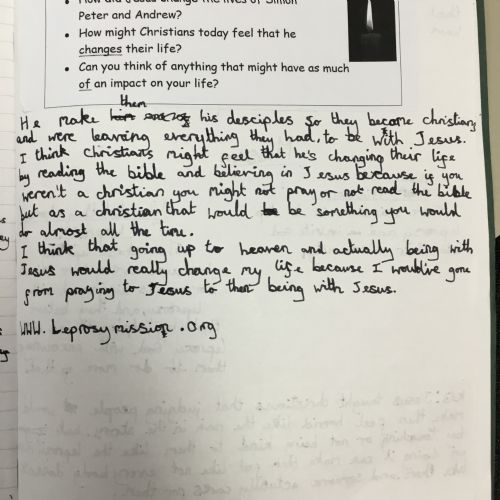 How did Jesus change the lives of Simon
Peter and Andrew?
How might Christians today feel that he
changes their life?
Can you think of anything that might have as much
of an impact on your life?
them
He make his desciples so they become christians
and were leaving everything they had, to be with Jesus.
I think christians might feel that he's changing their life
by reading the bible and believing in Jesus because if you
weren't a christian you might not pray or not read the bible
but as a christian that would be something you would
do almost all the time.
I think that going up to heaven and actually being with
Jesus would really change my life because I would've gone
from praying to Jesus to then being with Jesus.
WWW.Leprosymission.org